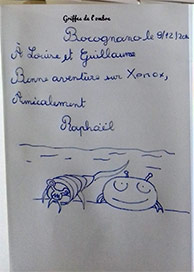 Griffes de l'ombre
Bocognano le 9/12/20
À Louise et Guillaume
Bonne aventure sur Xonox,
Amicalement
Raphaël